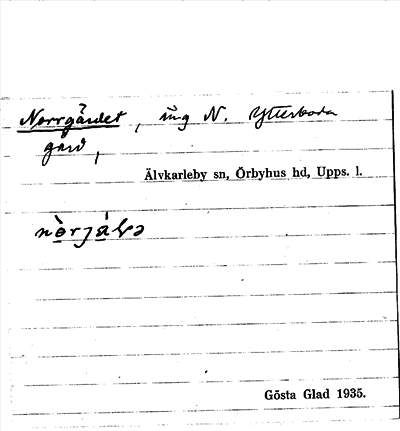 Norrgärdet, äng N. Ytterboda
gård,
Älvkarleby sn, Örbyhus hd, Upps. l.
Gösta Glad 1935.